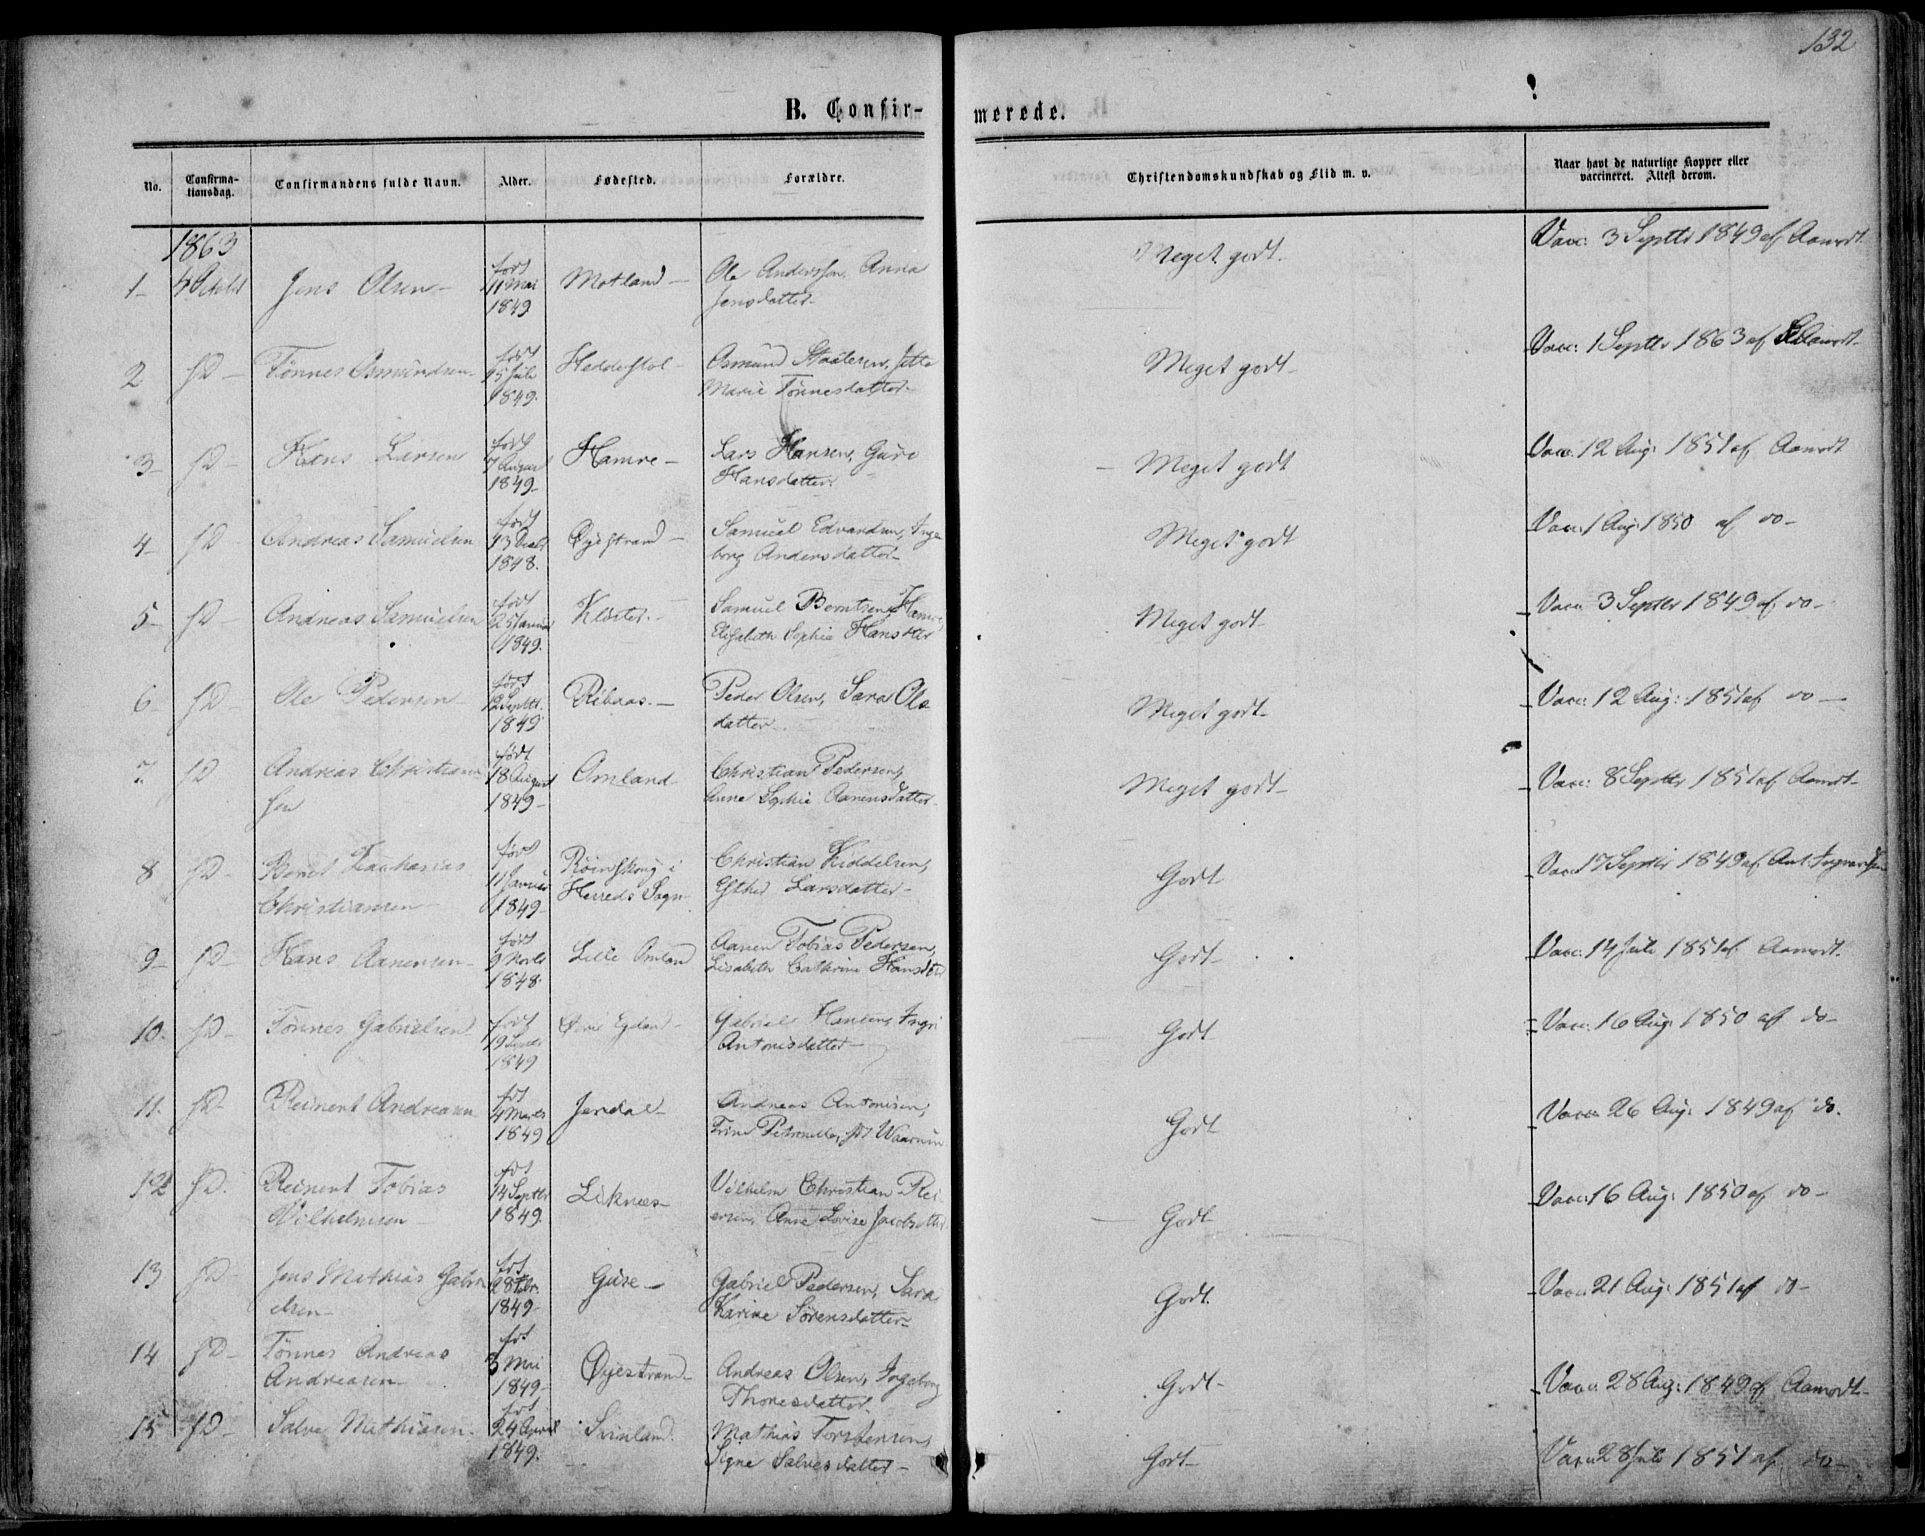 132
B. Confir- merede.
No. Confirma-tionsdag. Confirmandens fulde Navn. Alder. Fødested. Forældre. Christendomskundskab og Flid m. v. Naar havt de naturlige Kopper eller vaccineret. Attest derom.
1863
1- 4 Octobr Jens Olsen- født 11 Mai 1849 Motland- Ole Anderssen, Anna Jensdatter- Meget godt. Vacc: 3 Septbr 1849 af Aamodt.
2 JD- Tønnes Osmundsen- født 15 Juli 1849. Heddestol- Osmund Staalesen, Jette Marie Tønnesdatter- Meget godt- Vacc: 1 Septbr 1863 af Aamodt-
3- JD- Hans Larsen født 7 August 1849- Hamre- Lars Hansen, Guro Hansdatter. Meget godt Vacc: 12 Aug: 1851 af Aamodt
4- JD- Andreas Samuelsen født 13 Decbr 1848. Øyestrand- Samuel Edvardsen, Inge borg Andersdatter- Meget godt Vacc: 1 Aug: 1850 af do-
5- JD- Andreas Samuelsen født 25 Januar 1849. Kloster- Samuel Berntsen, Hamre, Elisabeth Sophie Hansdtter Meget godt- Vacc: 3 Septbr 1849 af do-
6- JD- Ole Pedersen født 12 Septbr. 1849 Ribaas.- Peder Olsen, Sara Ols datter- Meget godt- Vacc: 12 Aug: 1851 af do-
7. JD Andreas Christian sen født 18 August 1849- Omland- Christian Pedersen, Anne Sophie Aanensdatter- Meget godt- Vacc: 8 Septbr 1851 af Aamodt-
8 JD- Bernt Zacharias Christiansen- født 11 Januar 1849- Røinskoug i Herreds Sogn- Christian Kiddelsen, Esther Larsdatter- Godt Vacc: 17 Septbr 1849 af Ant. Ingvarsen
9- JD- Hans Aanensen- født 9 Novbr 1848. Lille Omland Aanen Tobias Pedersen, Lisabeth Cathrine Hansdtr Godt- Vacc: 14 Juli 1851 af Aamodt.
10. JD- Tønnes Gabrielsen født 19 1849 Egeland- Gabriel Hansen, Ingri Antonisdatter- Godt Vacc: 16 Aug: 1850 af do-
11. JD- Reinert Andreasen født 4 Marts 1849 Jerdal- Andreas Antonisen, Trine Petronelle, Godt Vacc: 26 Aug: 1849 af do.
12 JD. Reinert Tobias Vilhelmsen født 14 Septbr 1849. Liknæs- Vilhelm Christian Rei ersen, Anne Lovise Jacobsdatter Godt- Vacc: 16 Aug: 1850 af do-
13 JD- Jens Mathias Gabri elsen- født 28 Febr. 1849- Guse- Gabriel Pedersen, Sara Karine Sørensdatter- Godt. Vacc: 21 Aug: 1851 af do-
14 JD- Tønnes Andreas Andreasen- født 3 Mai 1849- Øyestrand- Andreas Olsen, Ingeborg Thoresdatter. Godt- Vacc: 28 Aug: 1849 af Aamodt-
15 JD- Salve Mathiasen- født 24 April 1849. Svinland. Mathias Torstensen, Signe Salvesdatter- Godt- Vacc: 28 Juli 1851 af do-